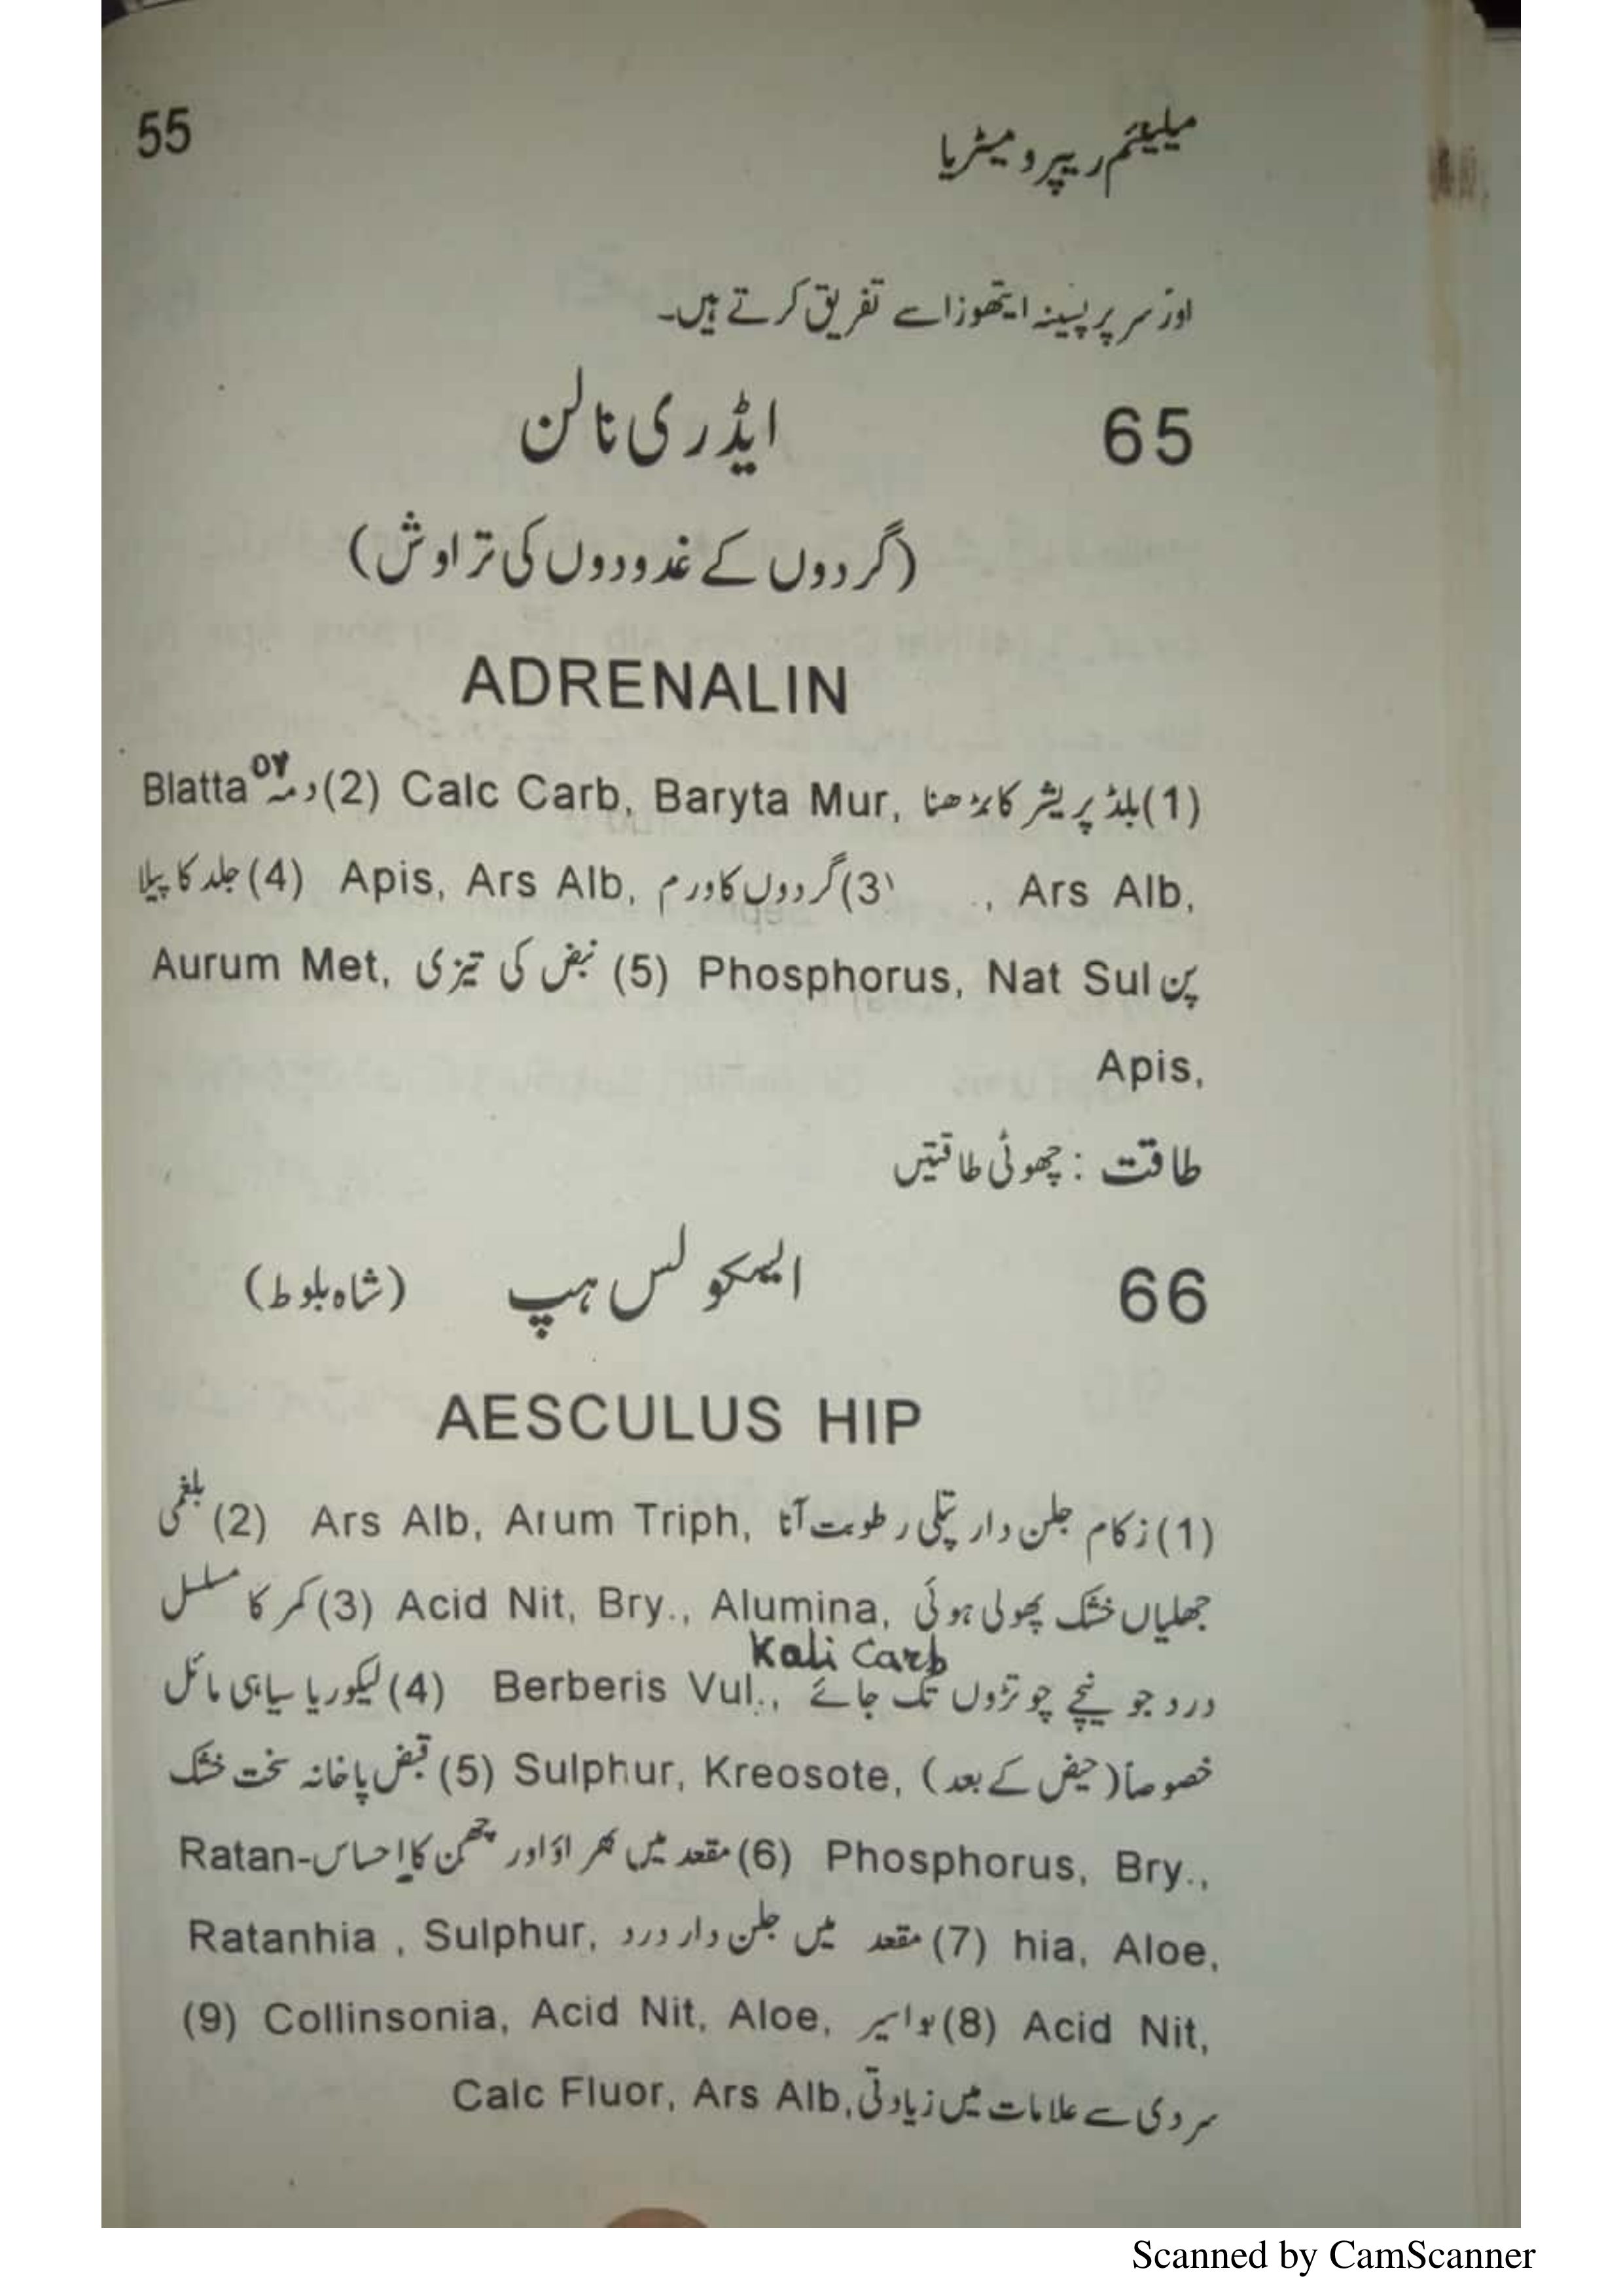 55
میلینئم ریپرومیٹریا
اور سر پر پسینہ ایتھوزا سے تفریق کرتے ہیں۔
65 ایڈری نالن
(گردوں کے غدودوں کی تراوش)
ADRENALIN
(1)بلڈ پریشر کا بڑھنا Calc Carb, Baryta Mur, (2)دمہ Blatta
Ars Alb, (3)گردوں کا ورم Apis, Ars Alb, (4)جلد کا پیلا
پن Phosphorus, Nat Sul (5) نبض کی تیزی Aurum Met,
Apis,
طاقت : چھوٹی طاقتیں
66 ایسکولس ہپ (شاہ بلوط)
AESCULUS HIP
(1)زکام جلن دار پتلی رطوبت آنا Ars Alb, Arum Triph, (2)بلغمی
جھلیاں خشک پھولی ہوئی Acid Nit, Bry., Alumina, (3)کمر کا مسلسل
Kali Carb
درد جو نیچے چوتڑوں تک جائے Berberis Vul., (4)لیکوریا سیاہی مائل
خصوصاً(حیض کے بعد) Sulphur, Kreosote, (5)قبض پاخانہ سخت خشک
Phosphorus, Bry., (6)مقعد میں بھراؤ اور چبھن کا احساس Ratan-
hia, Aloe, (7)مقعد میں جلن دار درد Ratanhia , Sulphur,
Acid Nit, (8)بواسیر Collinsonia, Acid Nit, Aloe, (9)
سردی سے علامات میں زیادتی Calc Fluor, Ars Alb,
Scanned by CamScanner